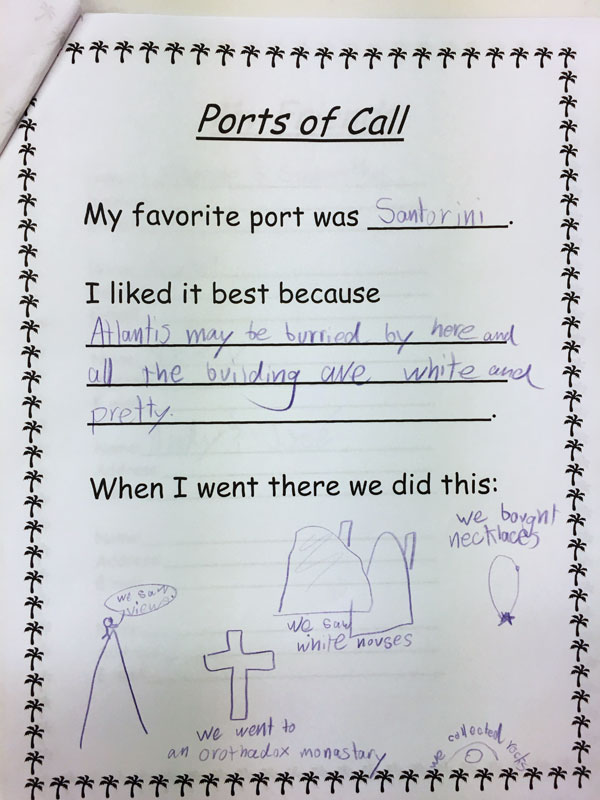 Ports of Call
My favorite port was Santorini.
I liked it best because
Atlantis may be burried by here and
all the building are white and
pretty.
When I went there we did this:
we bought
necklaces
we saw
views
we saw
white houses
we went to
an orothadox monastary
we collected rocks